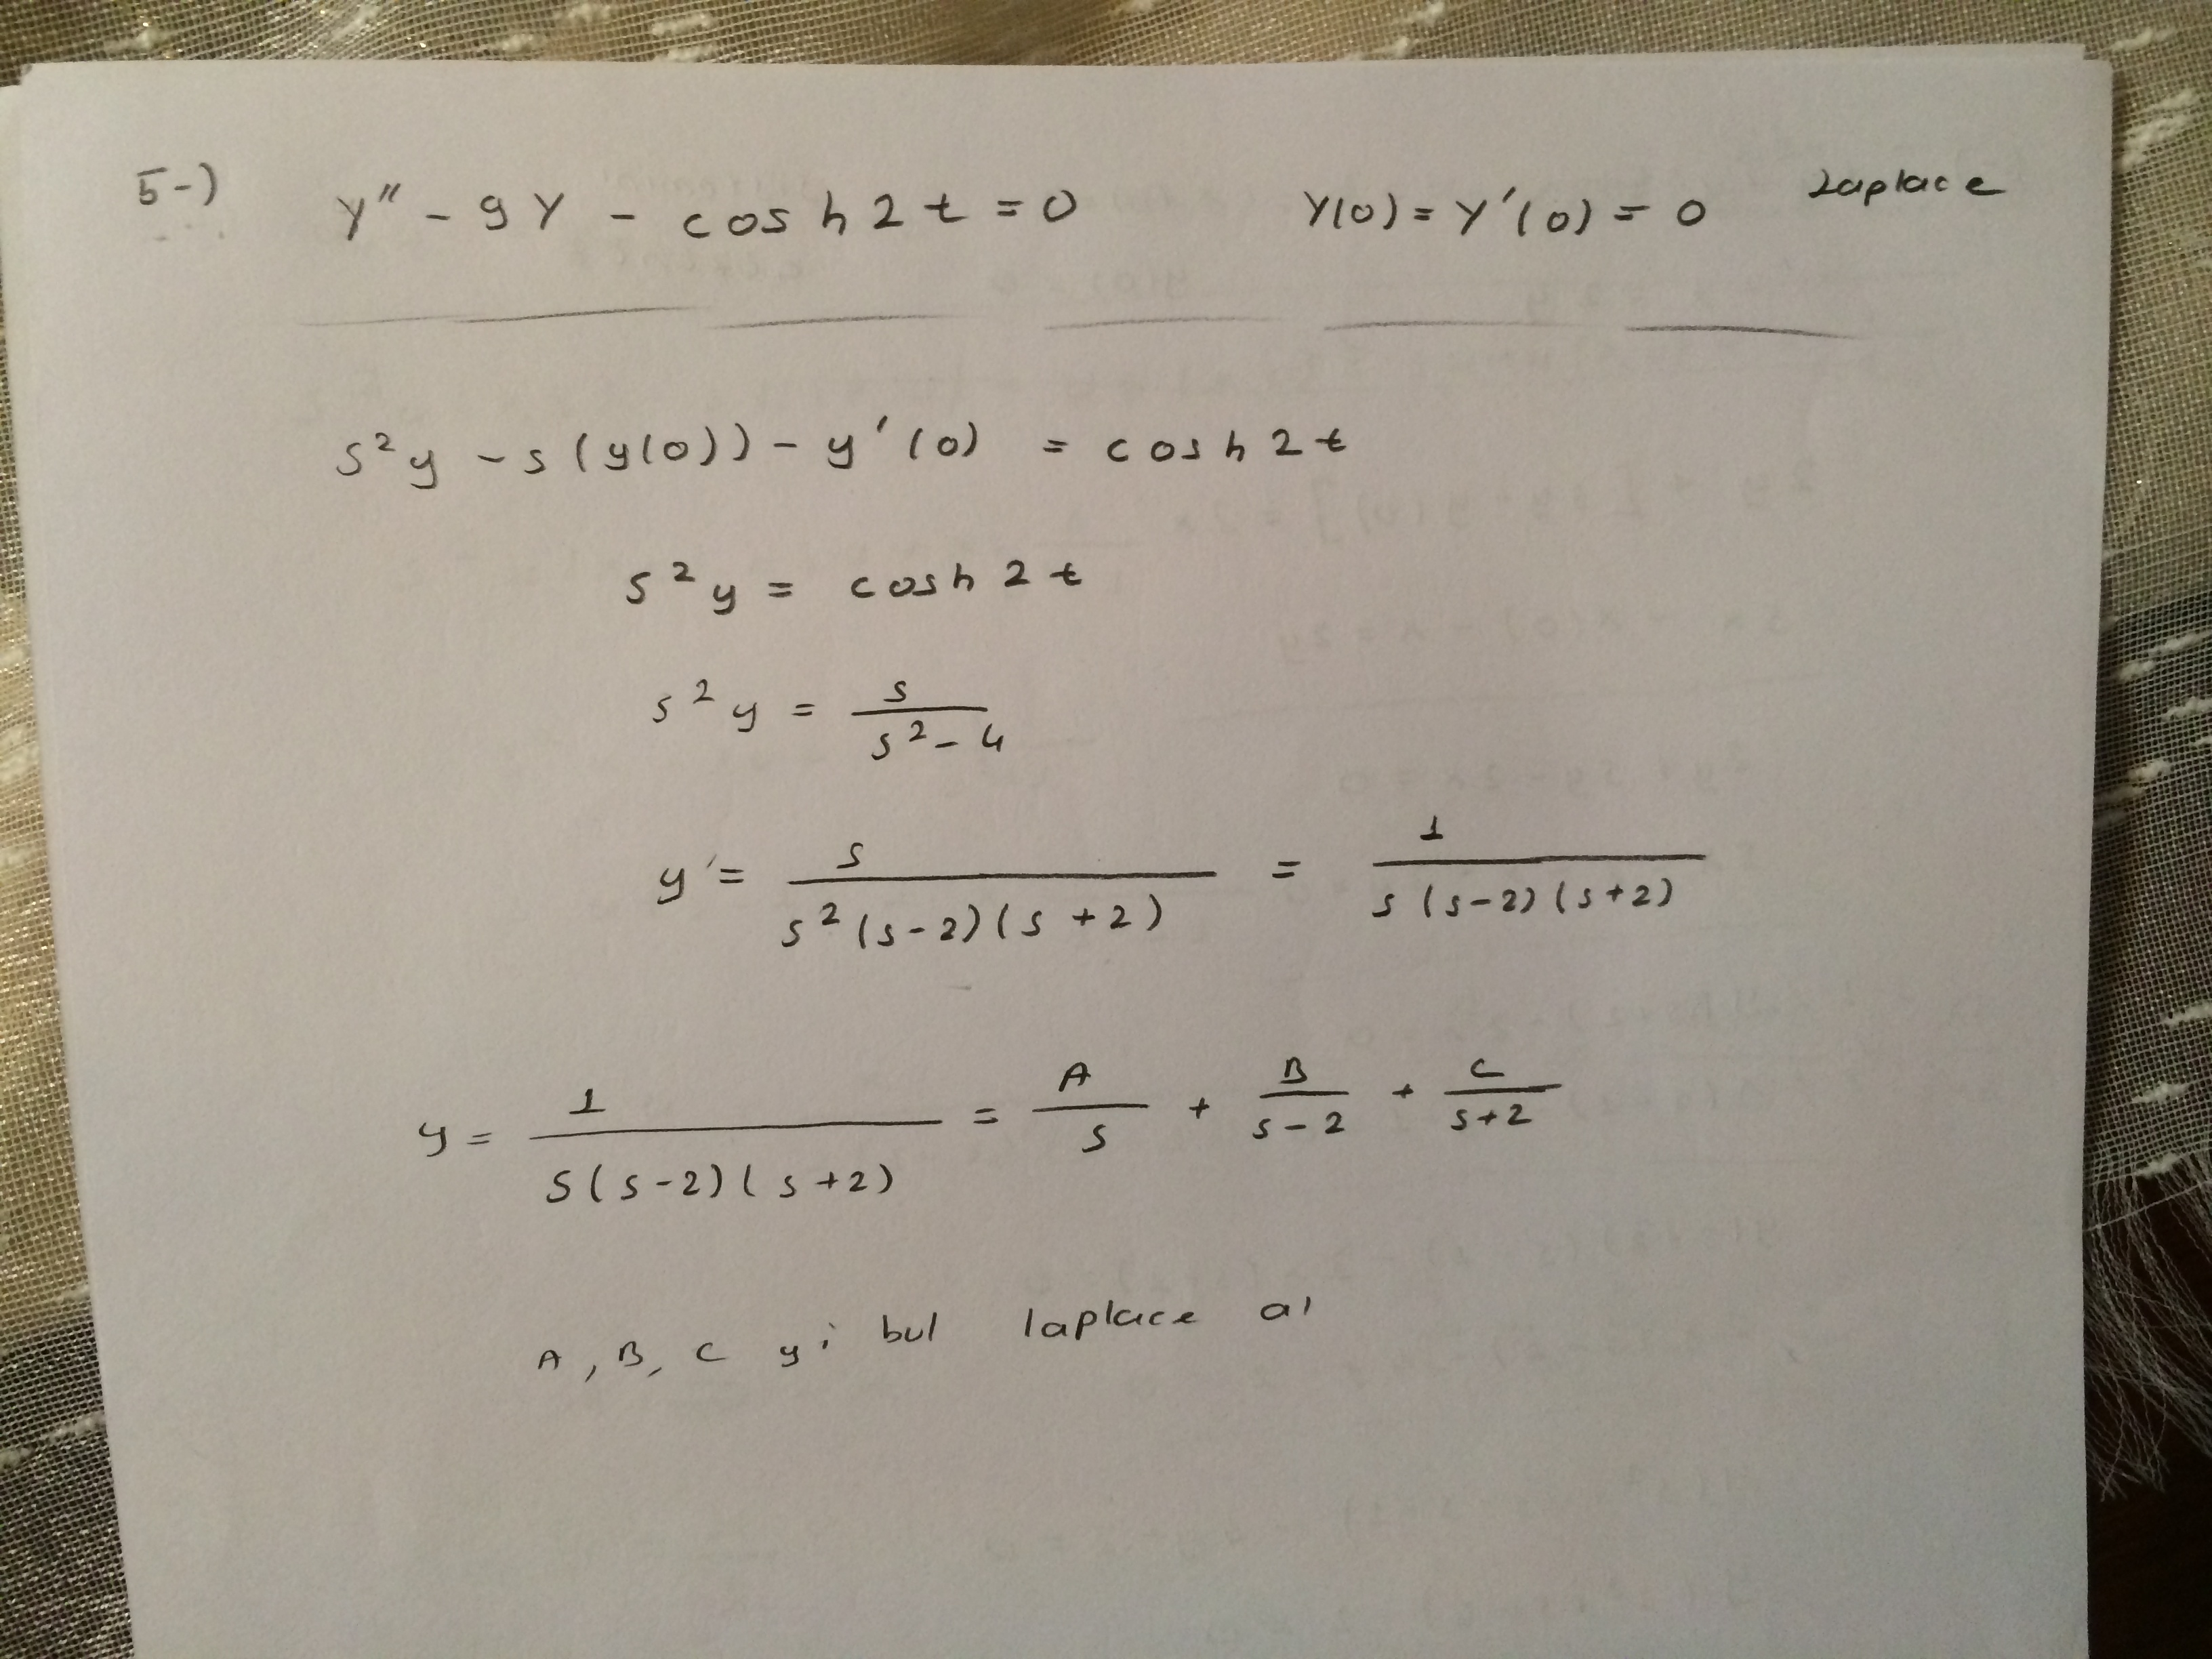 5-) y'' - 9y - cosh 2t = 0 y(0) = y'(0) = 0 Laplace
s²y - s(y(0)) - y'(0) = cosh 2t
s²y = cosh 2t
s²y = s/(s² - 4)
y = s/(s²(s-2)(s+2)) = 1/(s(s-2)(s+2))
y = 1/(s(s-2)(s+2)) = A/s + B/(s-2) + C/(s+2)
A, B, C yi bul laplace al